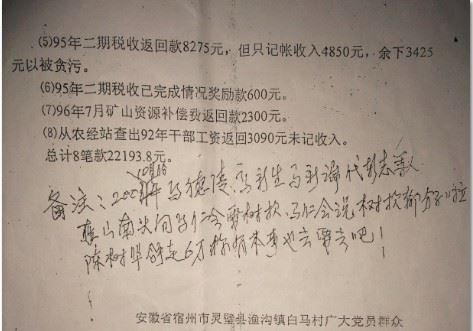 (5)95年二期税收返回款8275元，但只记帐收入4850元，余下3425
元以被贪污。
(6)95年二期税收已完成情况奖励款600元。
(7)96年7月矿山资源补偿费返回款2300元。
(8)从农经站查出92年干部工资返回3090元未记收入。
总计8笔款22193.8元。
10月26
备注：2008年马德法、马新生马新诗代彭志
焦山南头向马仁会要树款，马仁会说树款
陈树 6万 有本事也去要去吧！
安徽省宿州市灵璧县渔沟镇白马村广大党员群众